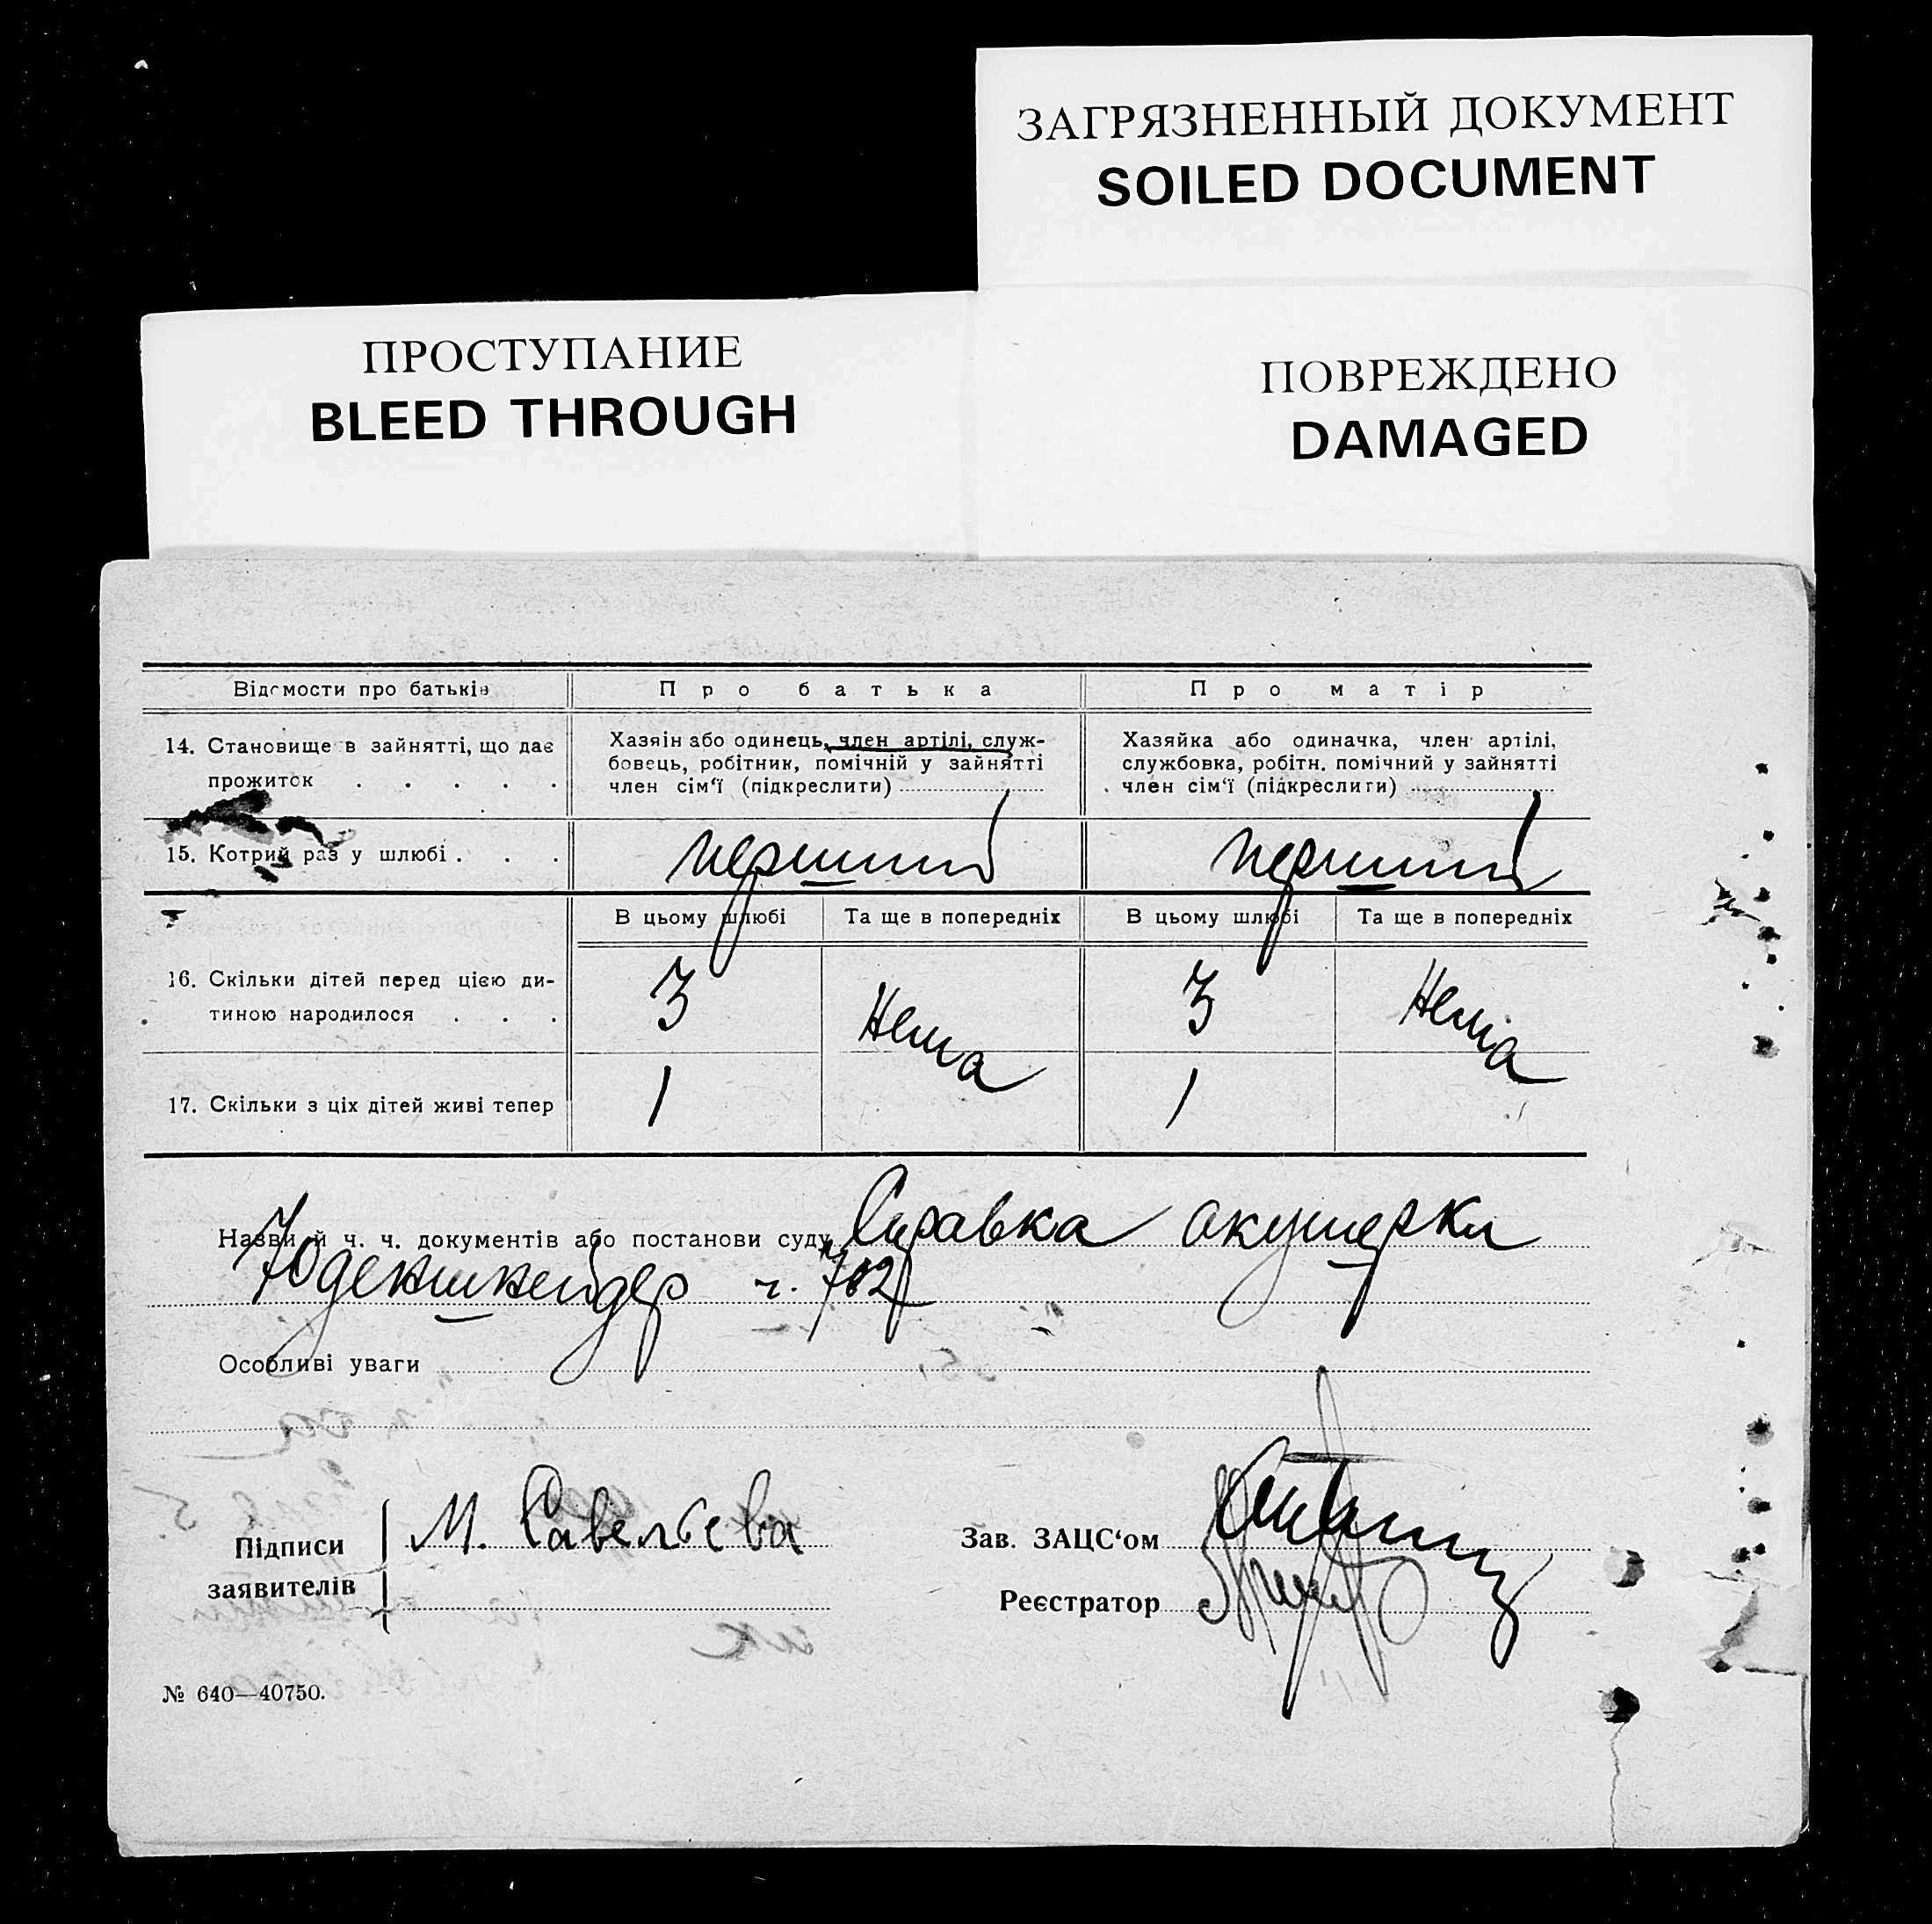 ЗАГРЯЗНЕННЫЙ ДОКУМЕНТ
SOILED DOCUMENT
ПРОСТУПАНИЕ
BLEED THROUGH
ПОВРЕЖДЕНО
DAMAGED
Відомости про батьків
Про батька
Про матір
14. Становище в зайнятті, що дає
прожиток . . . . .
Хазяін або одинець, член артілі, служ-
бовець, робітник, помічній у зайнятті
член сім'ї (підкреслити)
Хазяйка або одиначка, член артілі,
службовка, робітн. помічний у зайнятті
член сім'ї (підкреслити)
15. Котрий раз у шлюбі . . .
перший
перший
В цьому шлюбі
Та ще в попередніх
В цьому шлюбі
Та ще в попередніх
16. Скільки дітей перед цією ди-
тиною народилося . . .
3
Нема
3
Нема
17. Скільки з ціх дітей живі тепер
1
1
Назви й ч. ч. документів або постанови суду Справка акушерки
ч. 702
Особливі уваги
Підписи
заявителів
М. Савельєва
Зав. ЗАЦС'ом
Реєстратор
№ 640—40750.